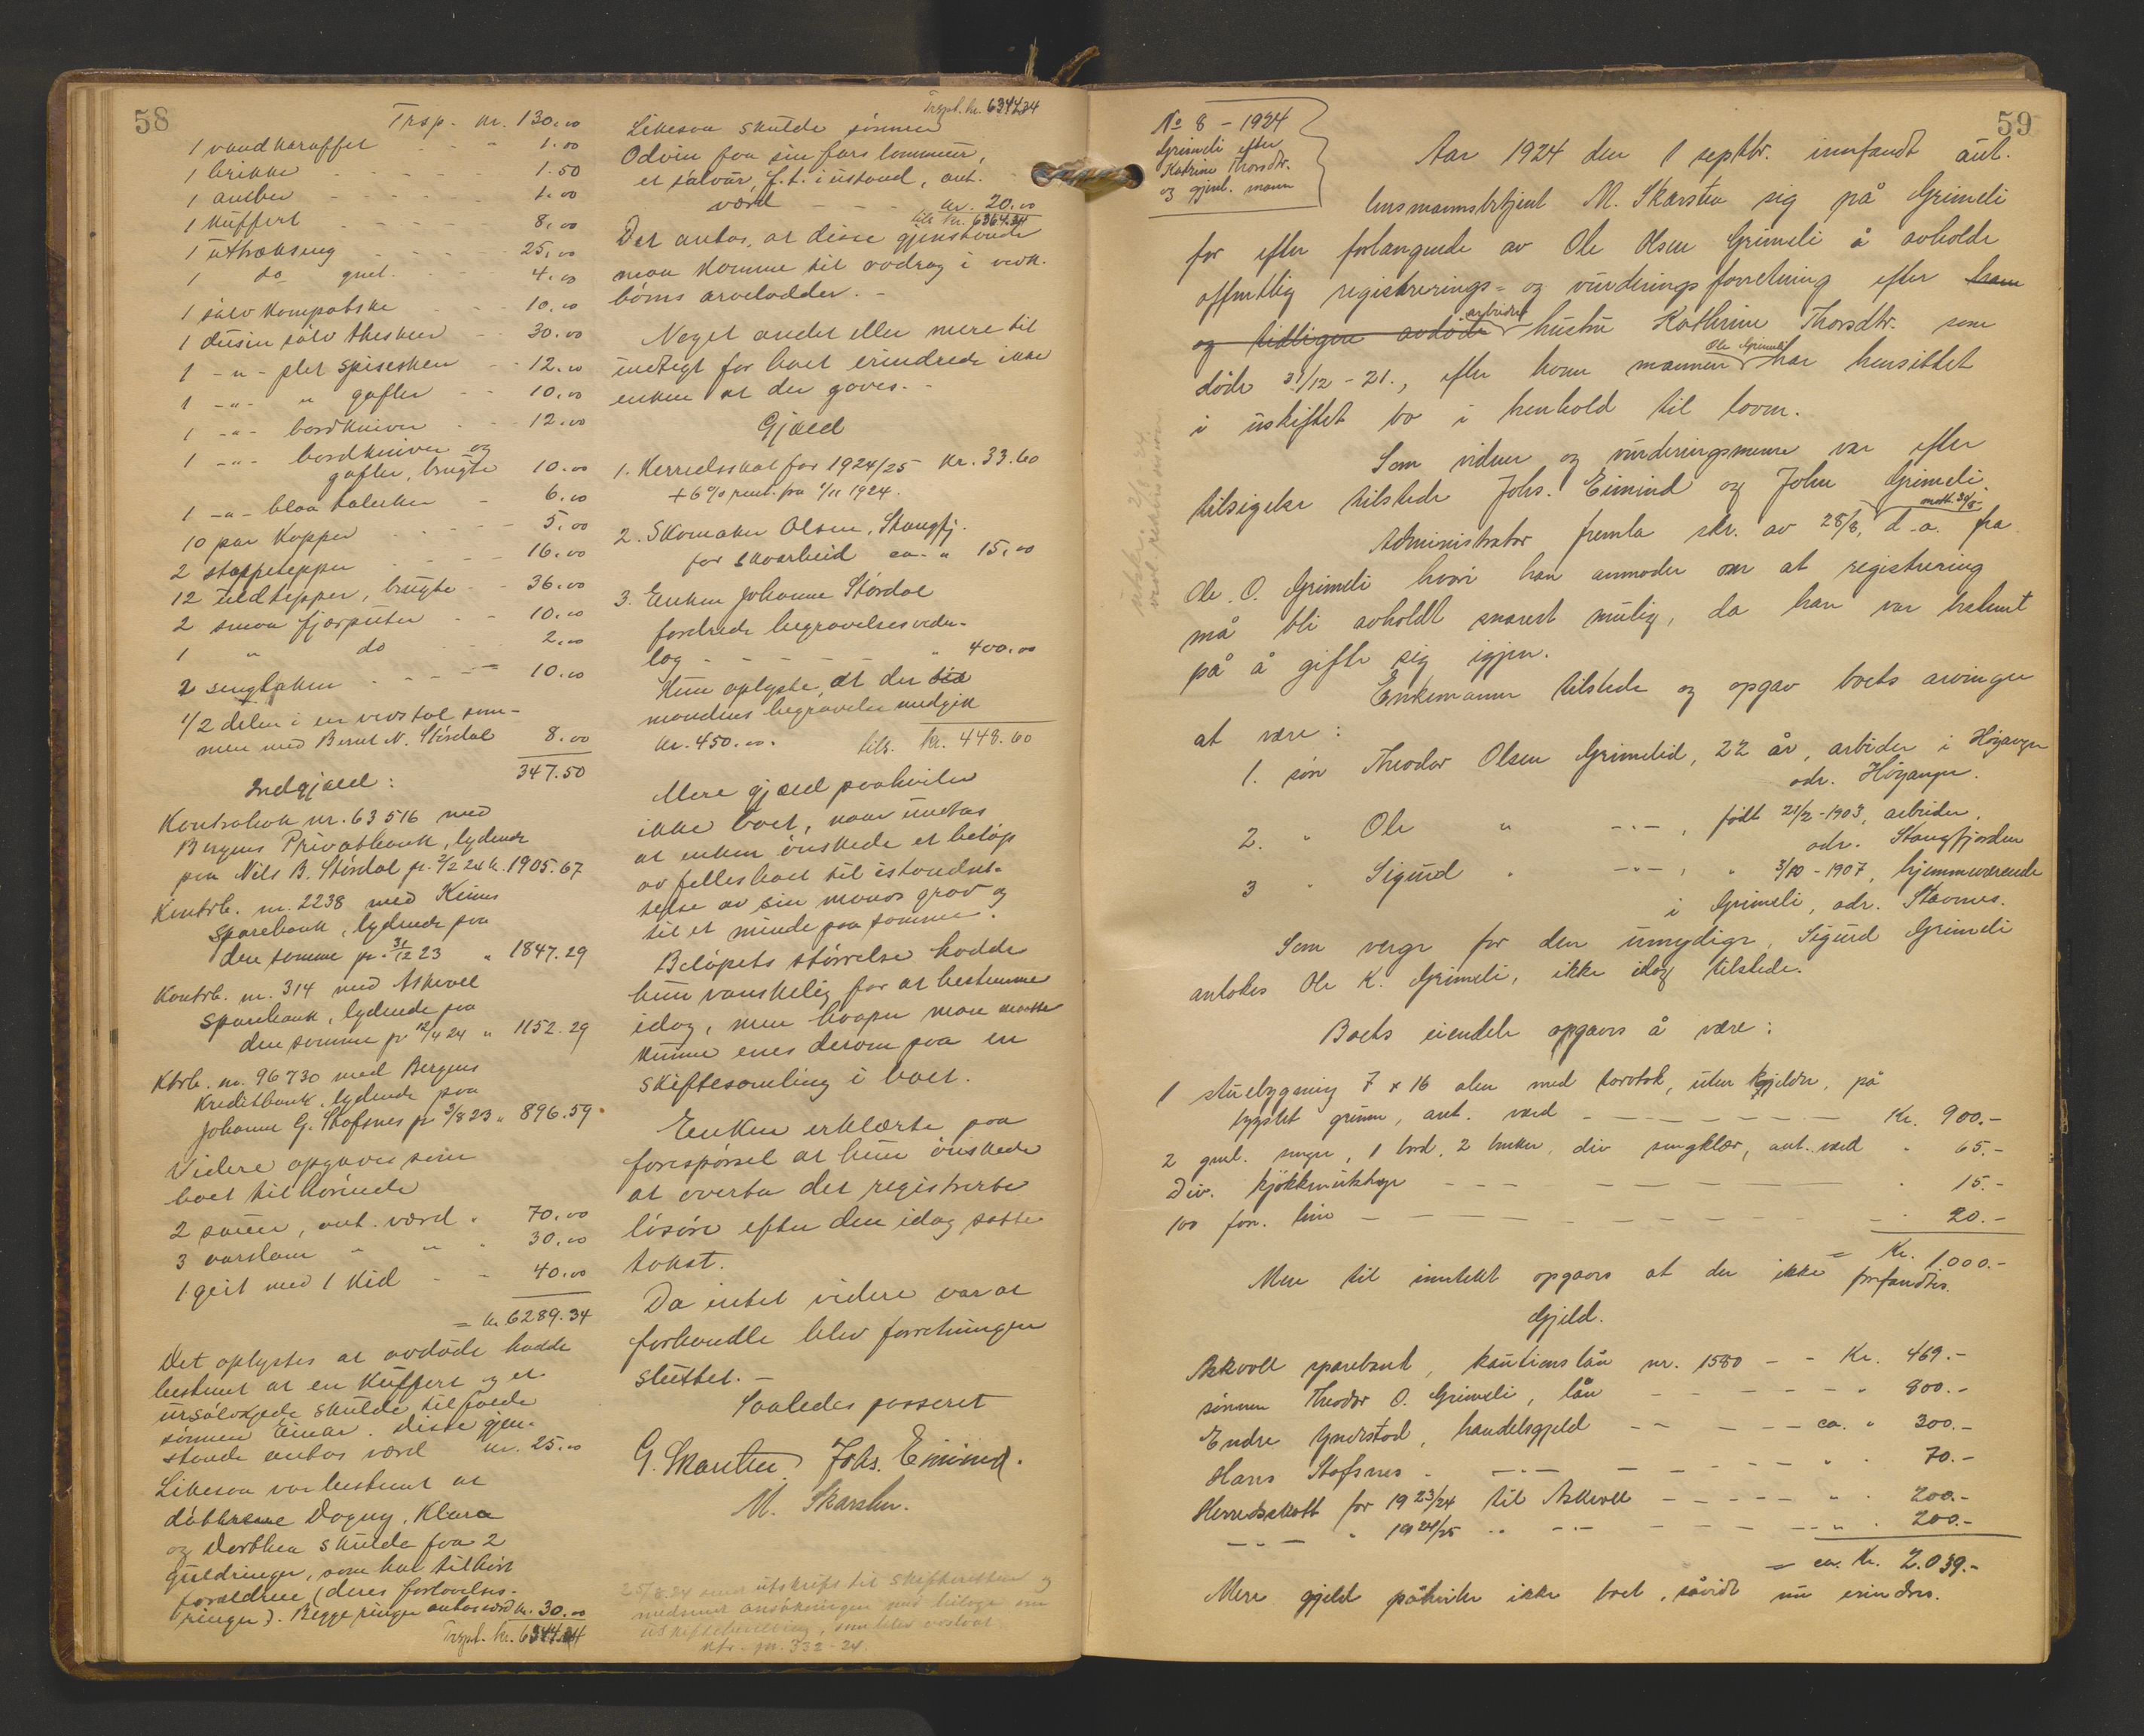 58
Trsp. kr. 130.00
1 vandkaraffel - - " 1.00
1 brikke - - - - 1.50
1 - - - - 1.00
1 kuffert - - - - 8.00
1 uttrækseng - - - 25.00
1 do gml. - - 4.00
1 sølv kompotske - - 10.00
1 dusin sølv theskeer - - 30.00
1 -"- plet spiseskeer - - 12.00
1 -"- " gafler - - 10.00
1 -"- bordkniver - - 12.00
1 -"- bordkniver og
gafler, brugte 10.00
1 -"- blaa talerker - 6.00
10 par kopper - - - - 5.00
2 stoppetepper - - - 16.00
12 uldtepper, brugte - - 36.00
2 smaa fjærputer - - 10.00
1 " do - - 2.00
2 senglaken - - - - 10.00
1/2 delen i en vevstol sam-
men med Bernt N. Størdal 8.00
347.50
Indgjæld:
Kontrabok nr. 63516 med
Bergens Privatbank, lydende
paa Nils B. Størdal pr. 2/2 24 kr. 1905.67
Kontrb. nr. 2238 med Kinns
Sparebank, lydende paa
den samme pr. 31/12 23 " 1847.29
Kontrb. nr. 314 med Askvoll
Sparebank, lydende paa
den samme pr 12/4 24 " 1152.29
Ktrb. nr. 96730 med Bergens
Kreditbank, lydende paa
Johanne G. Stafsnes pr 3/8 23 " 896.59
Videre opgaves som
boet tilhørende
2 sauer, ant. værd " 70.00
3 vaarlam " " " 30.00
1 geit med 1 kid - - 40.00
= kr. 6289.34
Det oplystes at avdøde hadde
bestemt at en kuffert og et
ursølvkjede skulde tilfalde
sønnen Einar. Disse gjen-
stande antas værd kr. 25.00
Likesaa var bestemt at
døtrene Dagny, Klara
og Dorthea skulde faa 2
guldringer, som har tilhørt
forældrene (deres forlovelses-
ringer). Begge ringer antas værd kr. 30.00
Trspt. kr. 6344.34
Trspt. kr. 6344.34
Likesaa skulde sønnen
Odvin faa sin fars lommeur,
et sølvur, f.t. i ustand, ant.
værd - - - - kr. 20.00
tils. kr. 6364.34
Det antas, at disse gjenstande
maa komme til avdrag i vedk.
børns arvelodder. -
Noget andet eller mere til
indtegt for boet erindrede ikke
enken at der gaves. -
Gjæld
1. Herredsskat for 1924/25 kr. 33.60
+ 6% rent. fra 1/11 1924.
2. Skomaker Olsen, Stangfj.
for skoarbeid ca. " 15.00
3. Enken Johanne Størdal
fordrede begravelsesveder-
lag - - - - " 400.00
Hun oplyste, at der til
mandens begravelse medgik
kr. 450.00. tils. kr. 448.60
Mere gjæld paahviler
ikke boet, naar undtas
at enken ønskede et beløp
av fellesboet til istandset-
telse av sin mands grav og
til et minde paa samme.
Beløpets størrelse hadde
hun vanskelig for at bestemme
idag, men haaper man maatte
kunne enes derom paa en
skiftesamling i boet.
Enken erklærte paa
forespørsel at hun ønskede
at overta det registrerte
løsøre efter den idag satte
takst.
Da intet videre var at
forhandle blev forretningen
sluttet. -
Saaledes passeret
G. Skarsten Johs. Eimind.
M. Skarsten.
25/8.24 send utskrift til skifteretten og
medsendt ansøkningen med bilage om
uskiftebevilling, som blev
nr. 332-24.
59
No 8 - 1924
Grimeli efter
Katrine Thorsdtr.
og gjenl. mann
utskr. 2/9 24
Aar 1924 den 1 septbr. innfandt aut.
lensmannsbetjent M. Skarsten sig på Grimeli
for efter forlangende av Ole Olsen Grimeli å avholde
offentlig registrerings- og vurderingsforretning efter ham
og tidligere avdøde arbeider hustru Kathrine Thorsdtr. som
døde 31/12-21., efter hvem mannen Ole Grimeli har hensittet
i uskiftet bo i henhold til loven.
Som vidner og vurderingsmenn var efter
tilsigelse tilstede Johs. Eimind og John Grimeli.
Administrator fremla skr. av 28/8, d.a. mott. 30/8 fra
Ole O. Grimeli hvori han anmoder om at registrering
må bli avholdt snarest mulig, da han var bestemt
på å gifte sig igjen.
Enkemannen tilstede og opgav boets arvinger
at være:
1. søn Theodor Olsen Grimelid, 22 år, arbeider i Høyanger
adr. Høyanger.
2. " Ole " -"- , født 21/2-1903, arbeider,
adr. Stangfjorden
3 " Sigurd " -"- , " 3/10-1907, hjemmeværende
i Grimeli, adr. Stavnes.
Som verge for den umyndige, Sigurd Grimeli
antokes Ole K. Grimeli, ikke idag tilstede.
Boets eiendele opgaves å være:
1 stuebygning 7 x 16 alen med torvtak, uten kjelder, på
bygslet grunn, ant. værd - - - - - Kr. 900.-
2 gml. senger, 1 bord, 2 benker, div sengklær, ant. værd " 65.-
Div. kjøkkenutstyr - - - - - - " 15.-
100 fon. - - - - - - - - " 20.-
= Kr. 1000.-
Mere til inntekt opgaves at der ikke forefandtes.
Gjeld.
Askvoll sparebank, kautionslån nr. 1580 - - Kr. 469.-
sønnen Theodor O. Grimeli, lån - - - - - " 800.-
Endre Yndestad, handelsgjeld - - - - ca. " 300.-
Hans Stafsnes - -"- - - - - - " 70.-
Herredsskatt for 1923/24 til Askvoll - - - - - " " 200.-
-"- " 1924/25 " -"- - - - - " " 200.-
= ca. Kr. 2.039.-
Mere gjeld påhviler ikke boet, såvidt nu erindres.